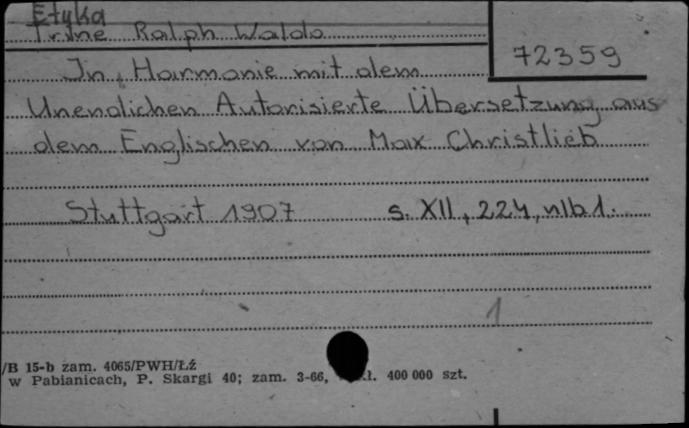 Etyka
Trine Ralph Waldo
72359
In Harmonie mit dem
Unendlichen Autorisierte Übersetzung aus
dem Englischen von Max Christlieb
Stuttgart 1907 s. XII, 224, nlb 1.
1
/B 15-b zam. 4065/PWH/Łź
w Pabianicach, P. Skargi 40; zam. 3-66, ł. 400 000 szt.